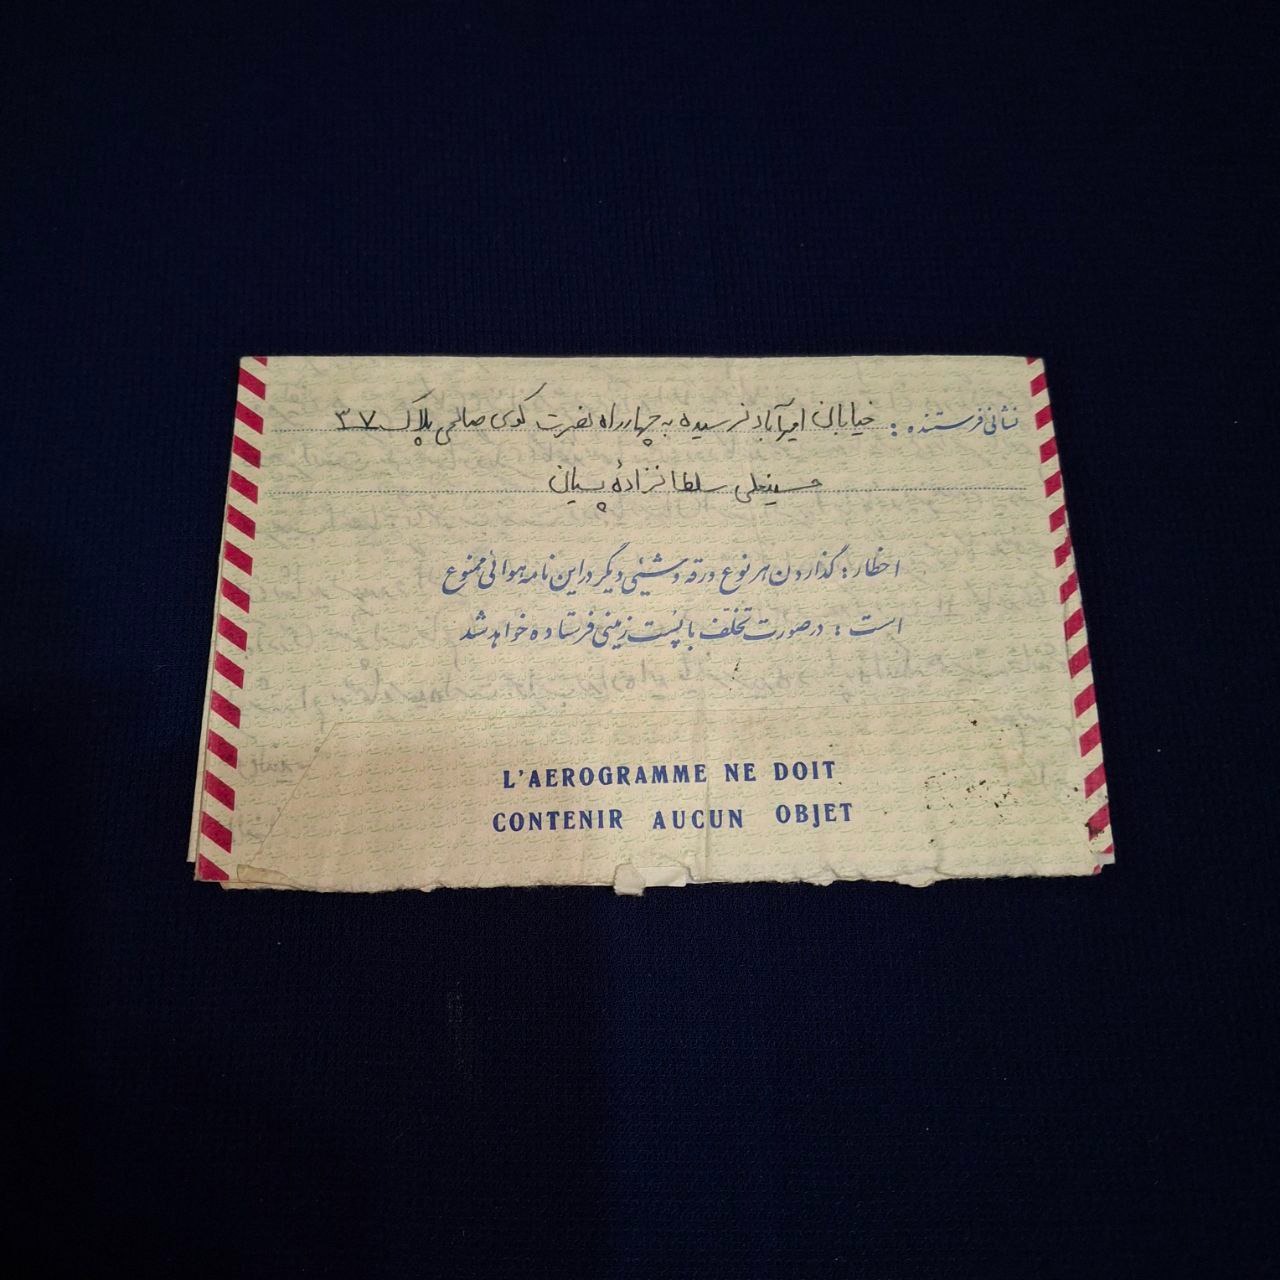 نشانی فرستنده : خیابان امیرآباد نرسیده به چهارراه نصرت کوی صالحی پلاک ۳۷
حسینعلی سلطانزادهٔ پسیان
اخطار : گذاردن هر نوع ورقه و شیئی دیگر در این نامه هوائی ممنوع
است : در صورت تخلف با پست زمینی فرستاده خواهد شد
L'AEROGRAMME NE DOIT
CONTENIR AUCUN OBJET